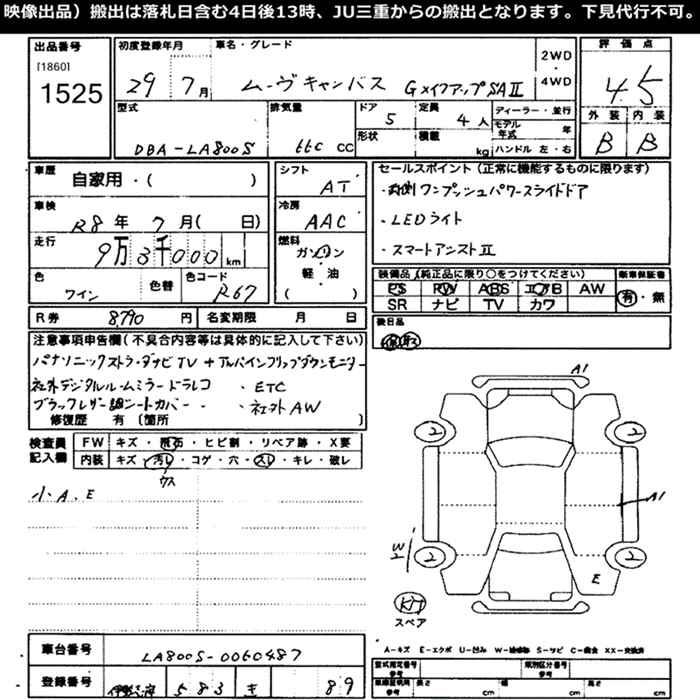 映像出品）搬出は落札日含む4日後13時、JU三重からの搬出となります。下見代行不可。
出品番号 [1860] 1525
初度登録年月 29年 7月
車名・グレード ムーヴキャンバス GメイクアップSAⅡ
2WD・4WD
評価点 4.5
外装 B 内装 B
型式 DBA-LA800S
排気量 660 cc
ドア 5
形状
定員 4人
積載 kg
ディーラー・並行
モデル年式 年
ハンドル 左・右
車歴 自家用・( )
車検 R8年 7月( 日)
走行 9万3千000 km
色 ワイン 色替 色コード R67
シフト AT
冷房 AAC
燃料 ガソリン 軽油 ( )
セールスポイント（正常に機能するものに限ります）
・両側ワンプッシュパワースライドドア
・LEDライト
・スマートアシストⅡ
装備品（純正品に限り○をつけてください） 新車保証書
PS PW ABS エアB AW
SR ナビ TV カワ
有・無
R券 8790円 名変期限 月 日
後日品
注意事項申告欄（不具合内容等は具体的に記入して下さい）
パナソニックストラーダナビTV+アルパインフリップダウンモニター
社外デジタルルームミラードラレコ ・ETC
ブラックレザー調シートカバー ・社外AW
修復歴 有 〔箇所 〕
検査員記入欄
FW キズ・飛石・ヒビ割・リペア跡・X要
内装 キズ・汚れ・コゲ・穴・スレ・キレ・破レ
ウス
小A.E
A1
2 2
A1
W2
2 2
E
スペア
A-キズ E-エクボ U-凹み W-補修跡 S-サビ C-腐食 XX-交換済
車台番号 LA800S-0060487
登録番号 583 89
型式指定番号 参考 類別区分番号 参考
車庫証明用 参考 長さ cm 幅 cm 高さ cm